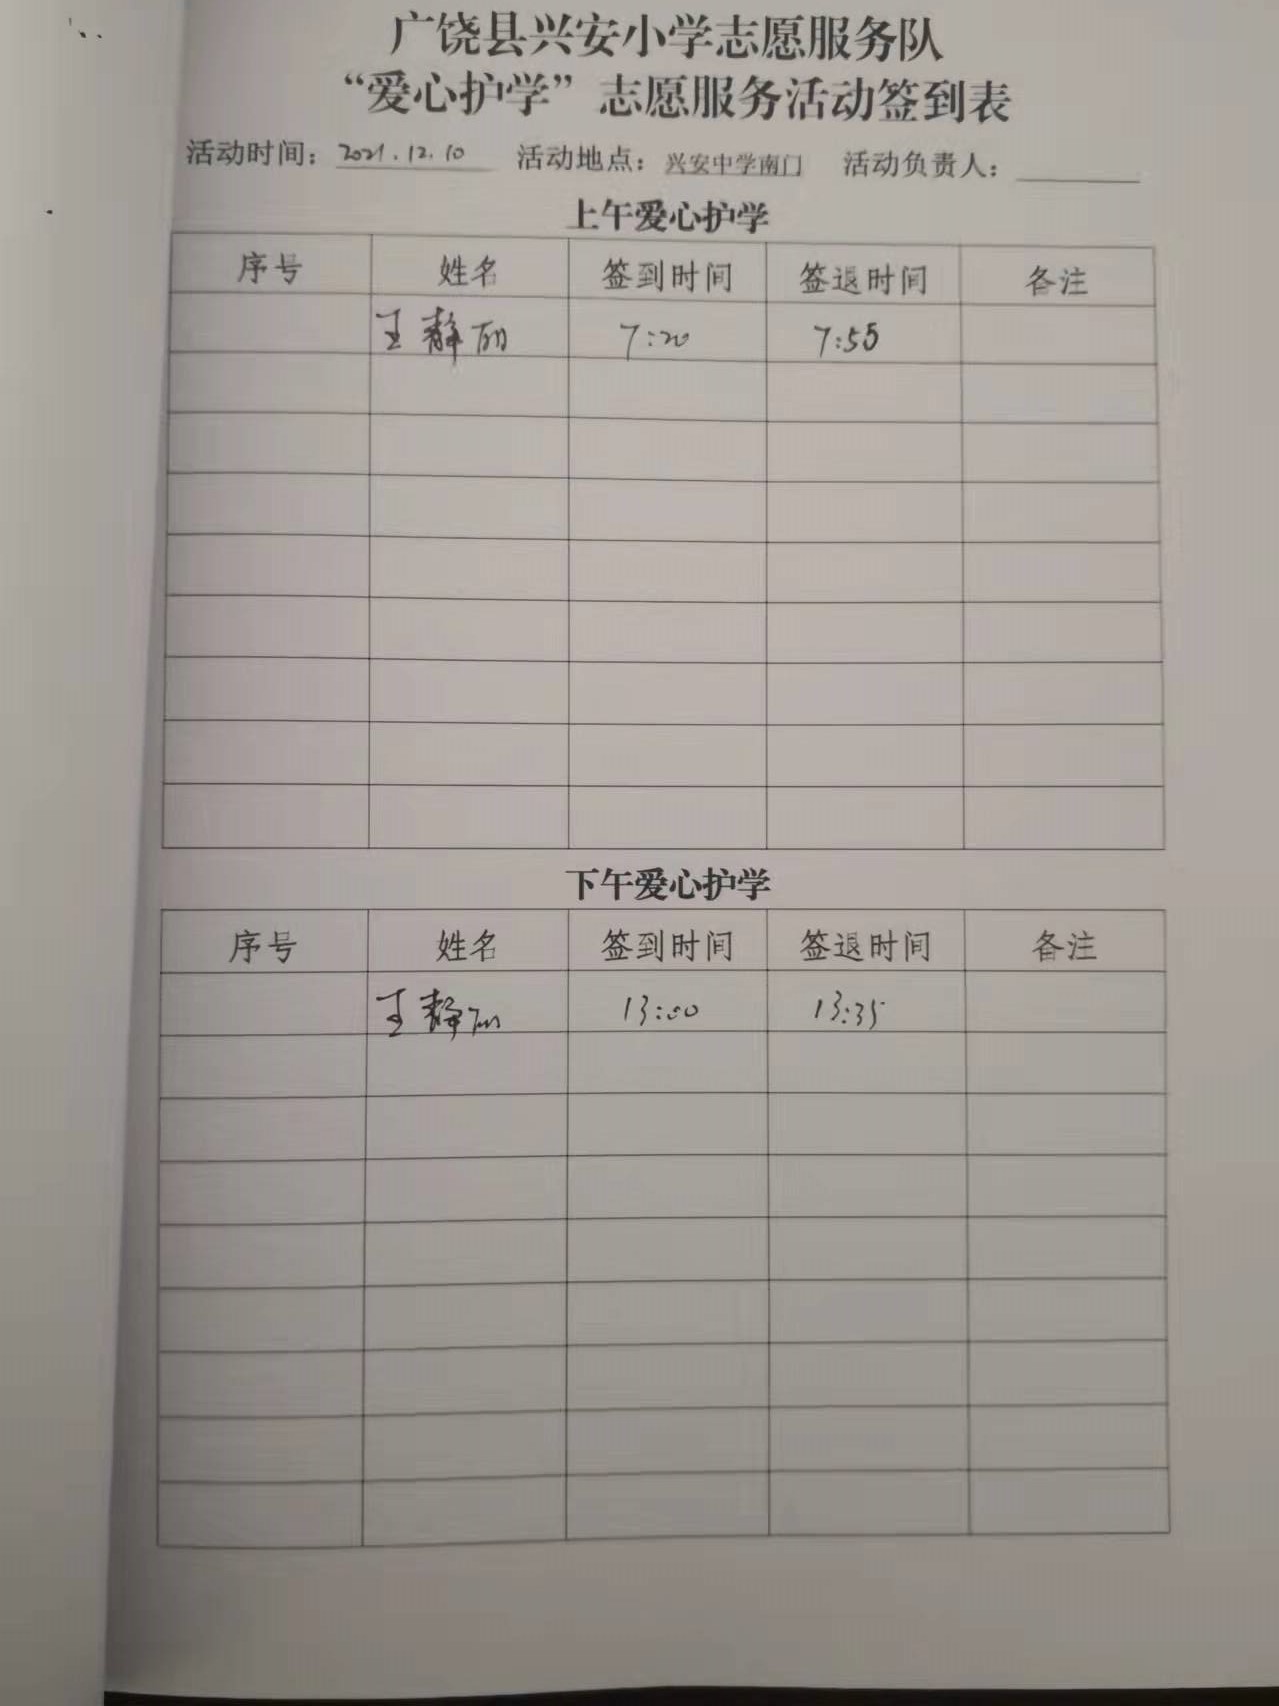 广饶县兴安小学志愿服务队
“爱心护学”志愿服务活动签到表
活动时间：2021.12.10 活动地点：兴安中学南门 活动负责人：
上午爱心护学
序号 姓名 签到时间 签退时间 备注
王静丽 7:20 7:55
下午爱心护学
序号 姓名 签到时间 签退时间 备注
王静丽 13:00 13:35